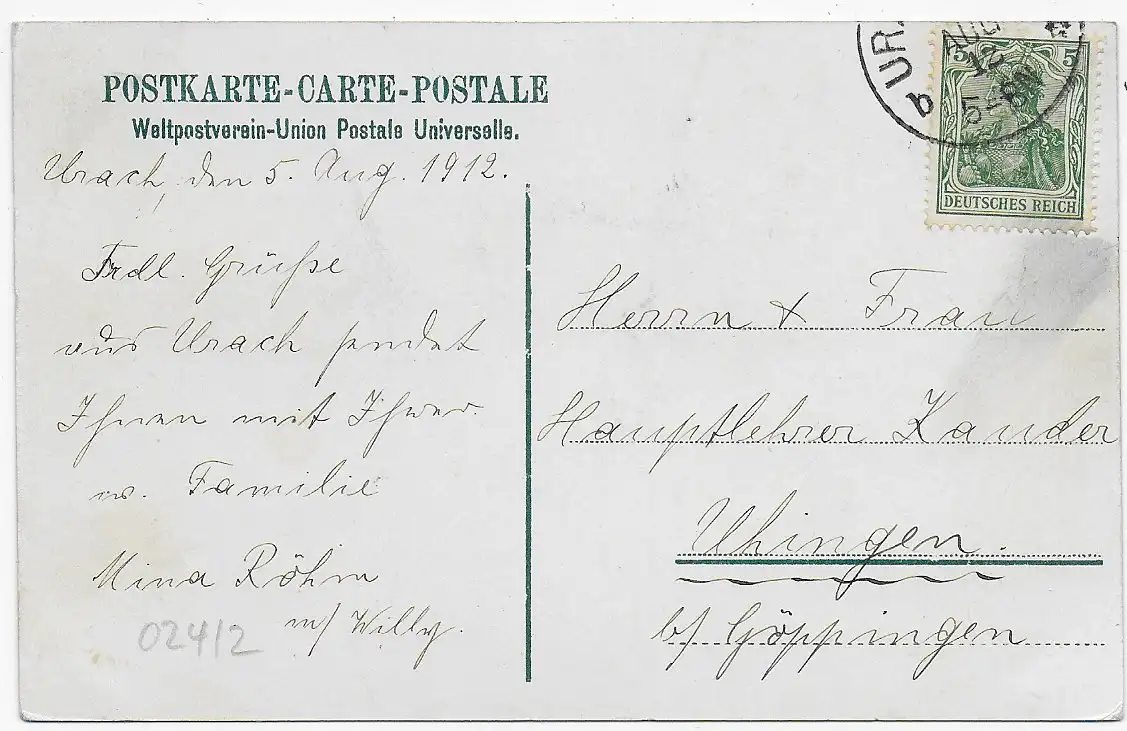 POSTKARTE-CARTE-POSTALE
Weltpostverein-Union Postale Universelle.
Urach, den 5. Aug. 1912.
Frdl. Grüße
aus Urach sendet
Ihnen mit Ihrer
w. Familie
Mina Röhm
m/ Willy.
024/2
b UR
AUG
12
5-6N
5 5
DEUTSCHES REICH
Herrn & Frau
Hauptlehrer Zander
Uhingen.
b/ Göppingen